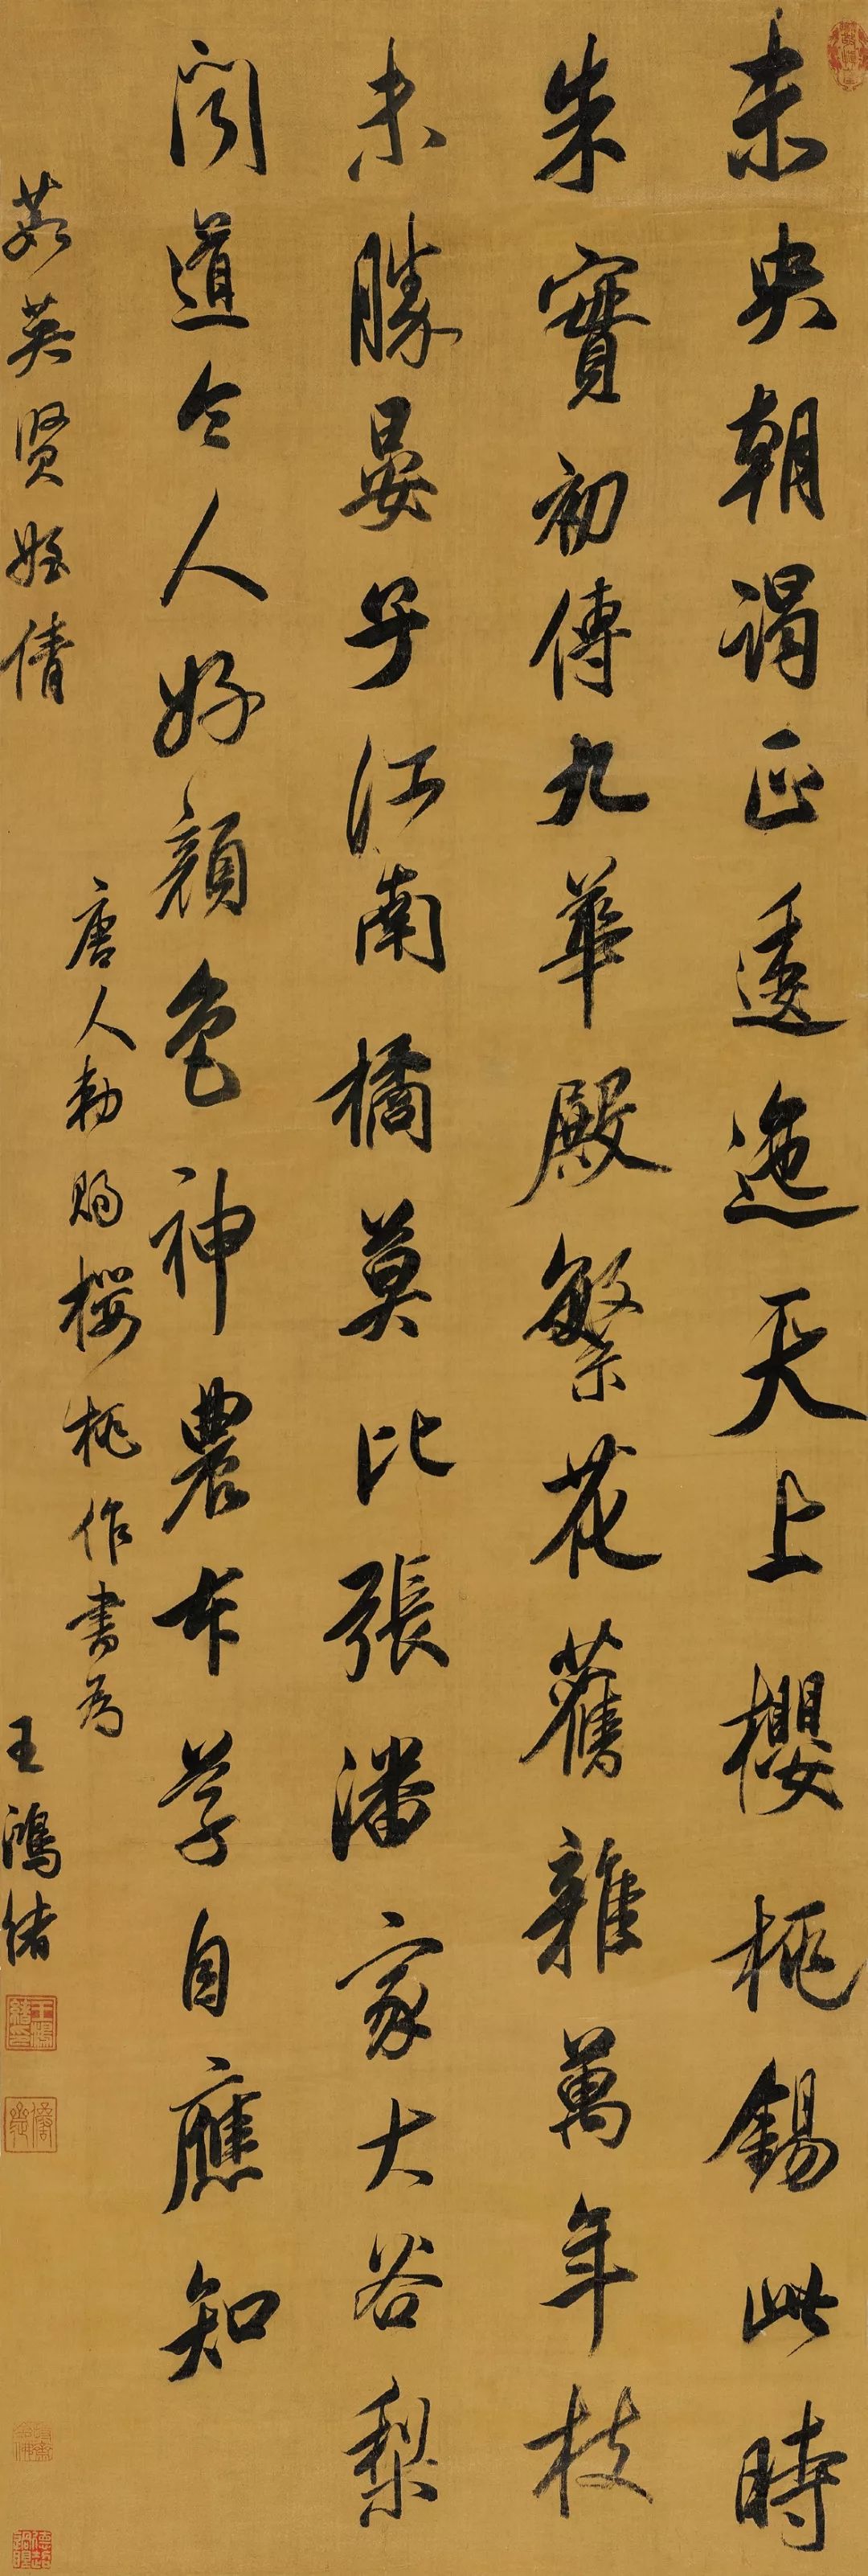 未央朝謁正逶迤天上櫻桃錫此時
朱實初傳九華殿繁花舊雜萬年枝
未勝晏子江南橘莫比張潘家大谷梨
聞道令人好顏色神農本草自應知
唐人勅賜櫻桃作書為
蒼英賢姪倩
王鴻緒